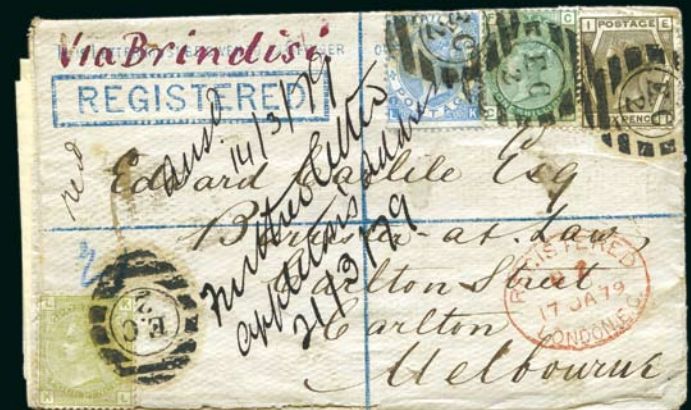 Via Brindisi
REGISTERED
POSTAGE
E.C
2
E.C
2
E
2
14/3/79
Edward Carlile Esq
Barrister-at-Law
Carlton Street
Carlton
Melbourne
Further letter
21/3/79
REGISTERED
17 JA 79
LONDON.E.C.
E.C
2